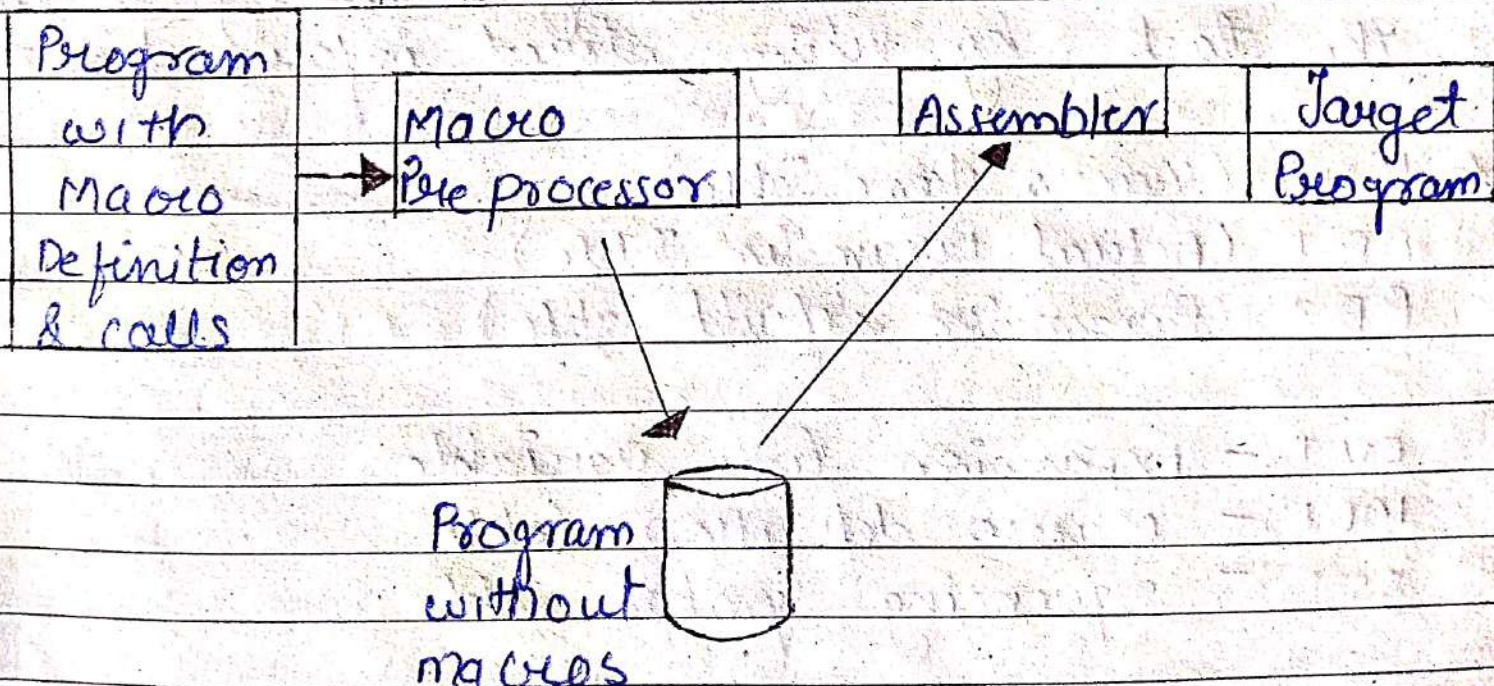 Program
with
Macro
Definition
& calls
Macro
Pre processor
Assembler
Target
Program
Program
without
macros